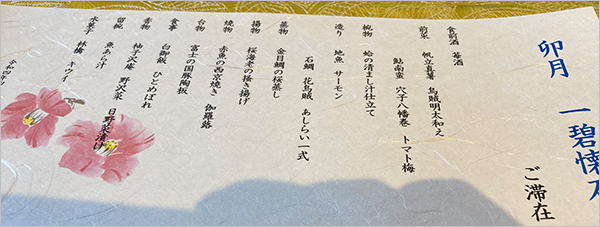 卯月 一碧懐
ご滞在
食前酒 苺酒
前菜 帆立真薯 烏賊明太和え
鮎南蛮 穴子八幡巻 トマト梅
椀物 蛤の清まし汁仕立て
造り 地魚 サーモン
石鯛 花烏賊 あしらい一式
蒸物 金目鯛の桜蒸し
揚物 桜海老の掻き揚げ
焼物 赤魚の西京焼き 伽羅蕗
台物 富士の国豚陶板
食事 白御飯 ひとめぼれ
香物 柚子沢庵 野沢菜 日野菜漬け
留椀 魚あら汁
水菓子 林檎 キウイ
令和四